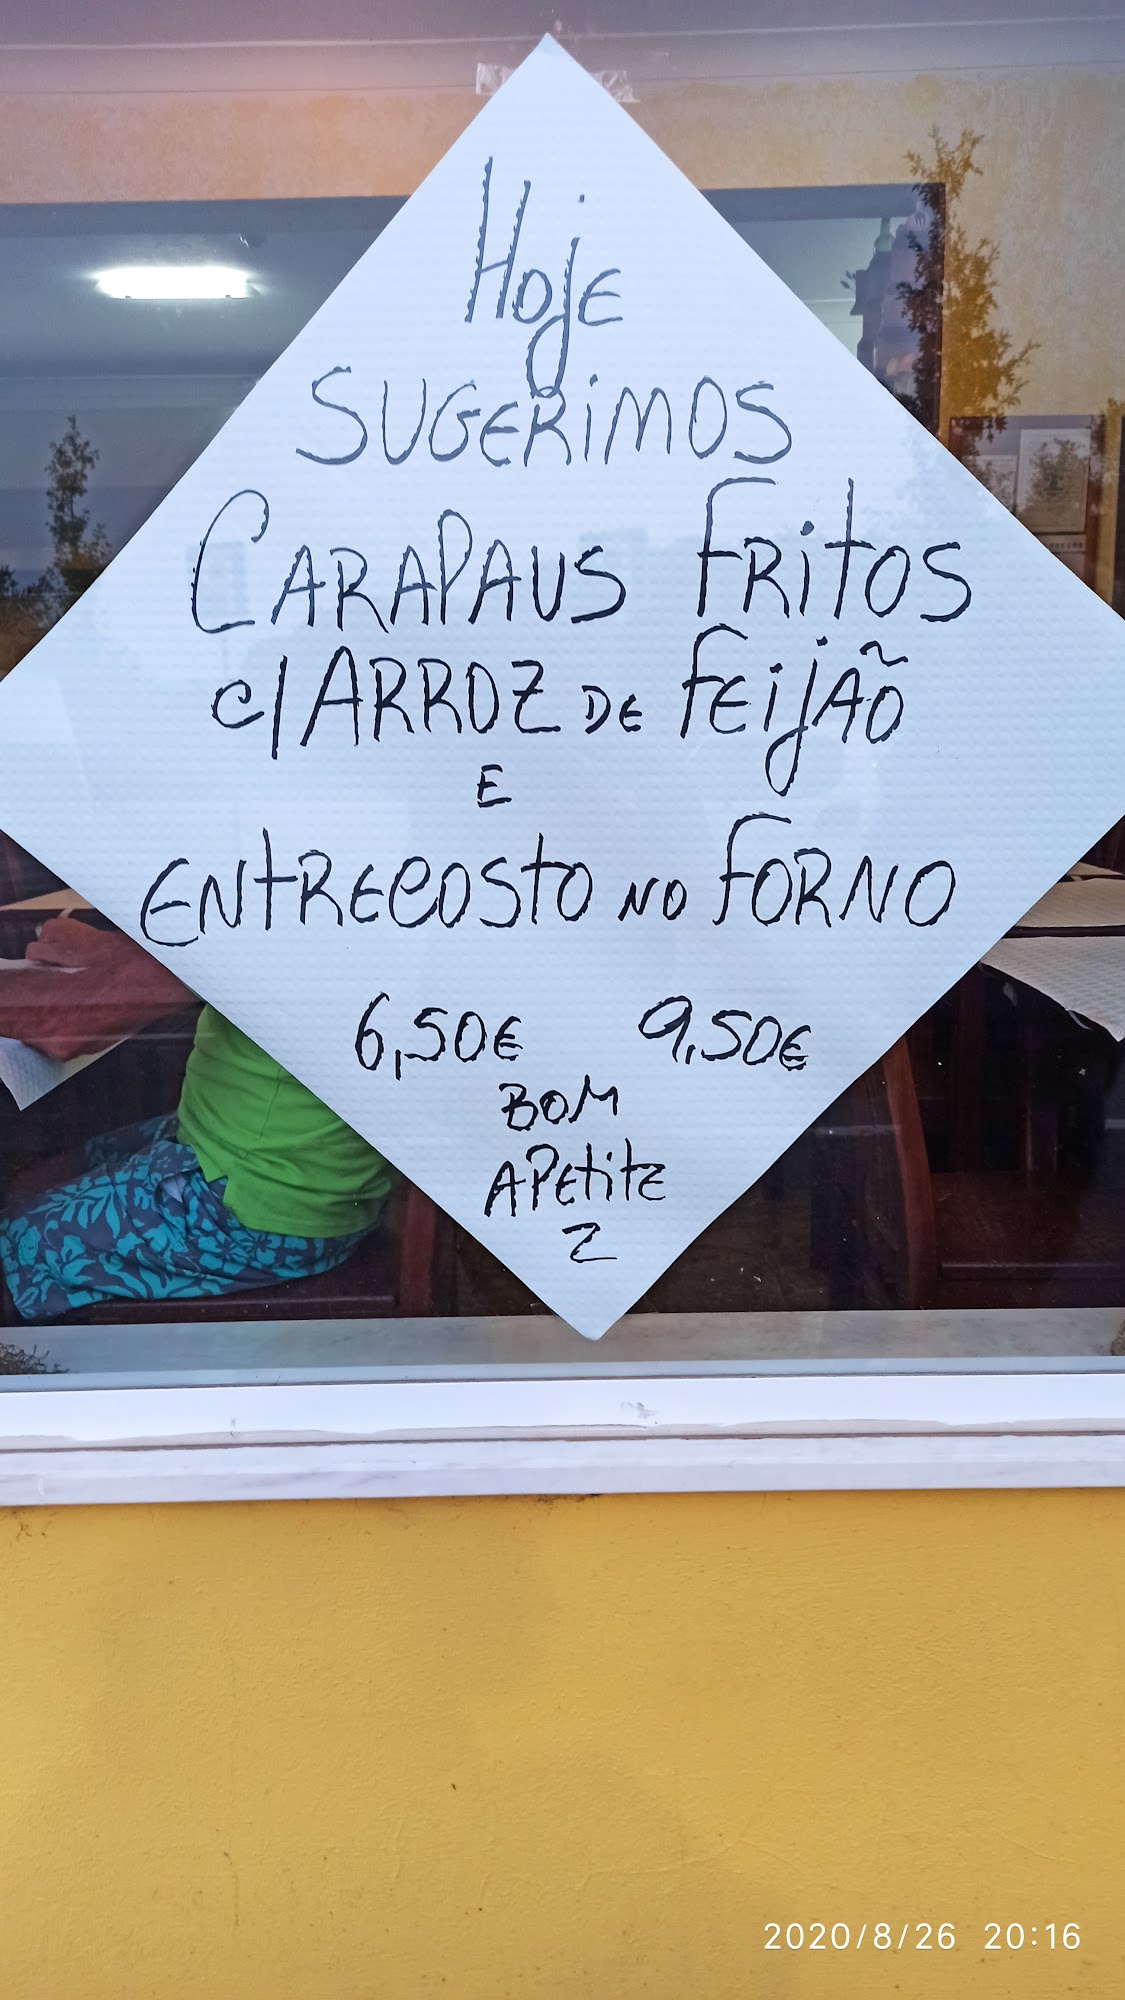 Hoje
SUGERIMOS
CARAPAUS FRITOS
c/ ARROZ DE FEIJÃO
E
ENTRECOSTO NO FORNO
6,50€ 9,50€
BOM
APETITE
2020/8/26 20:16